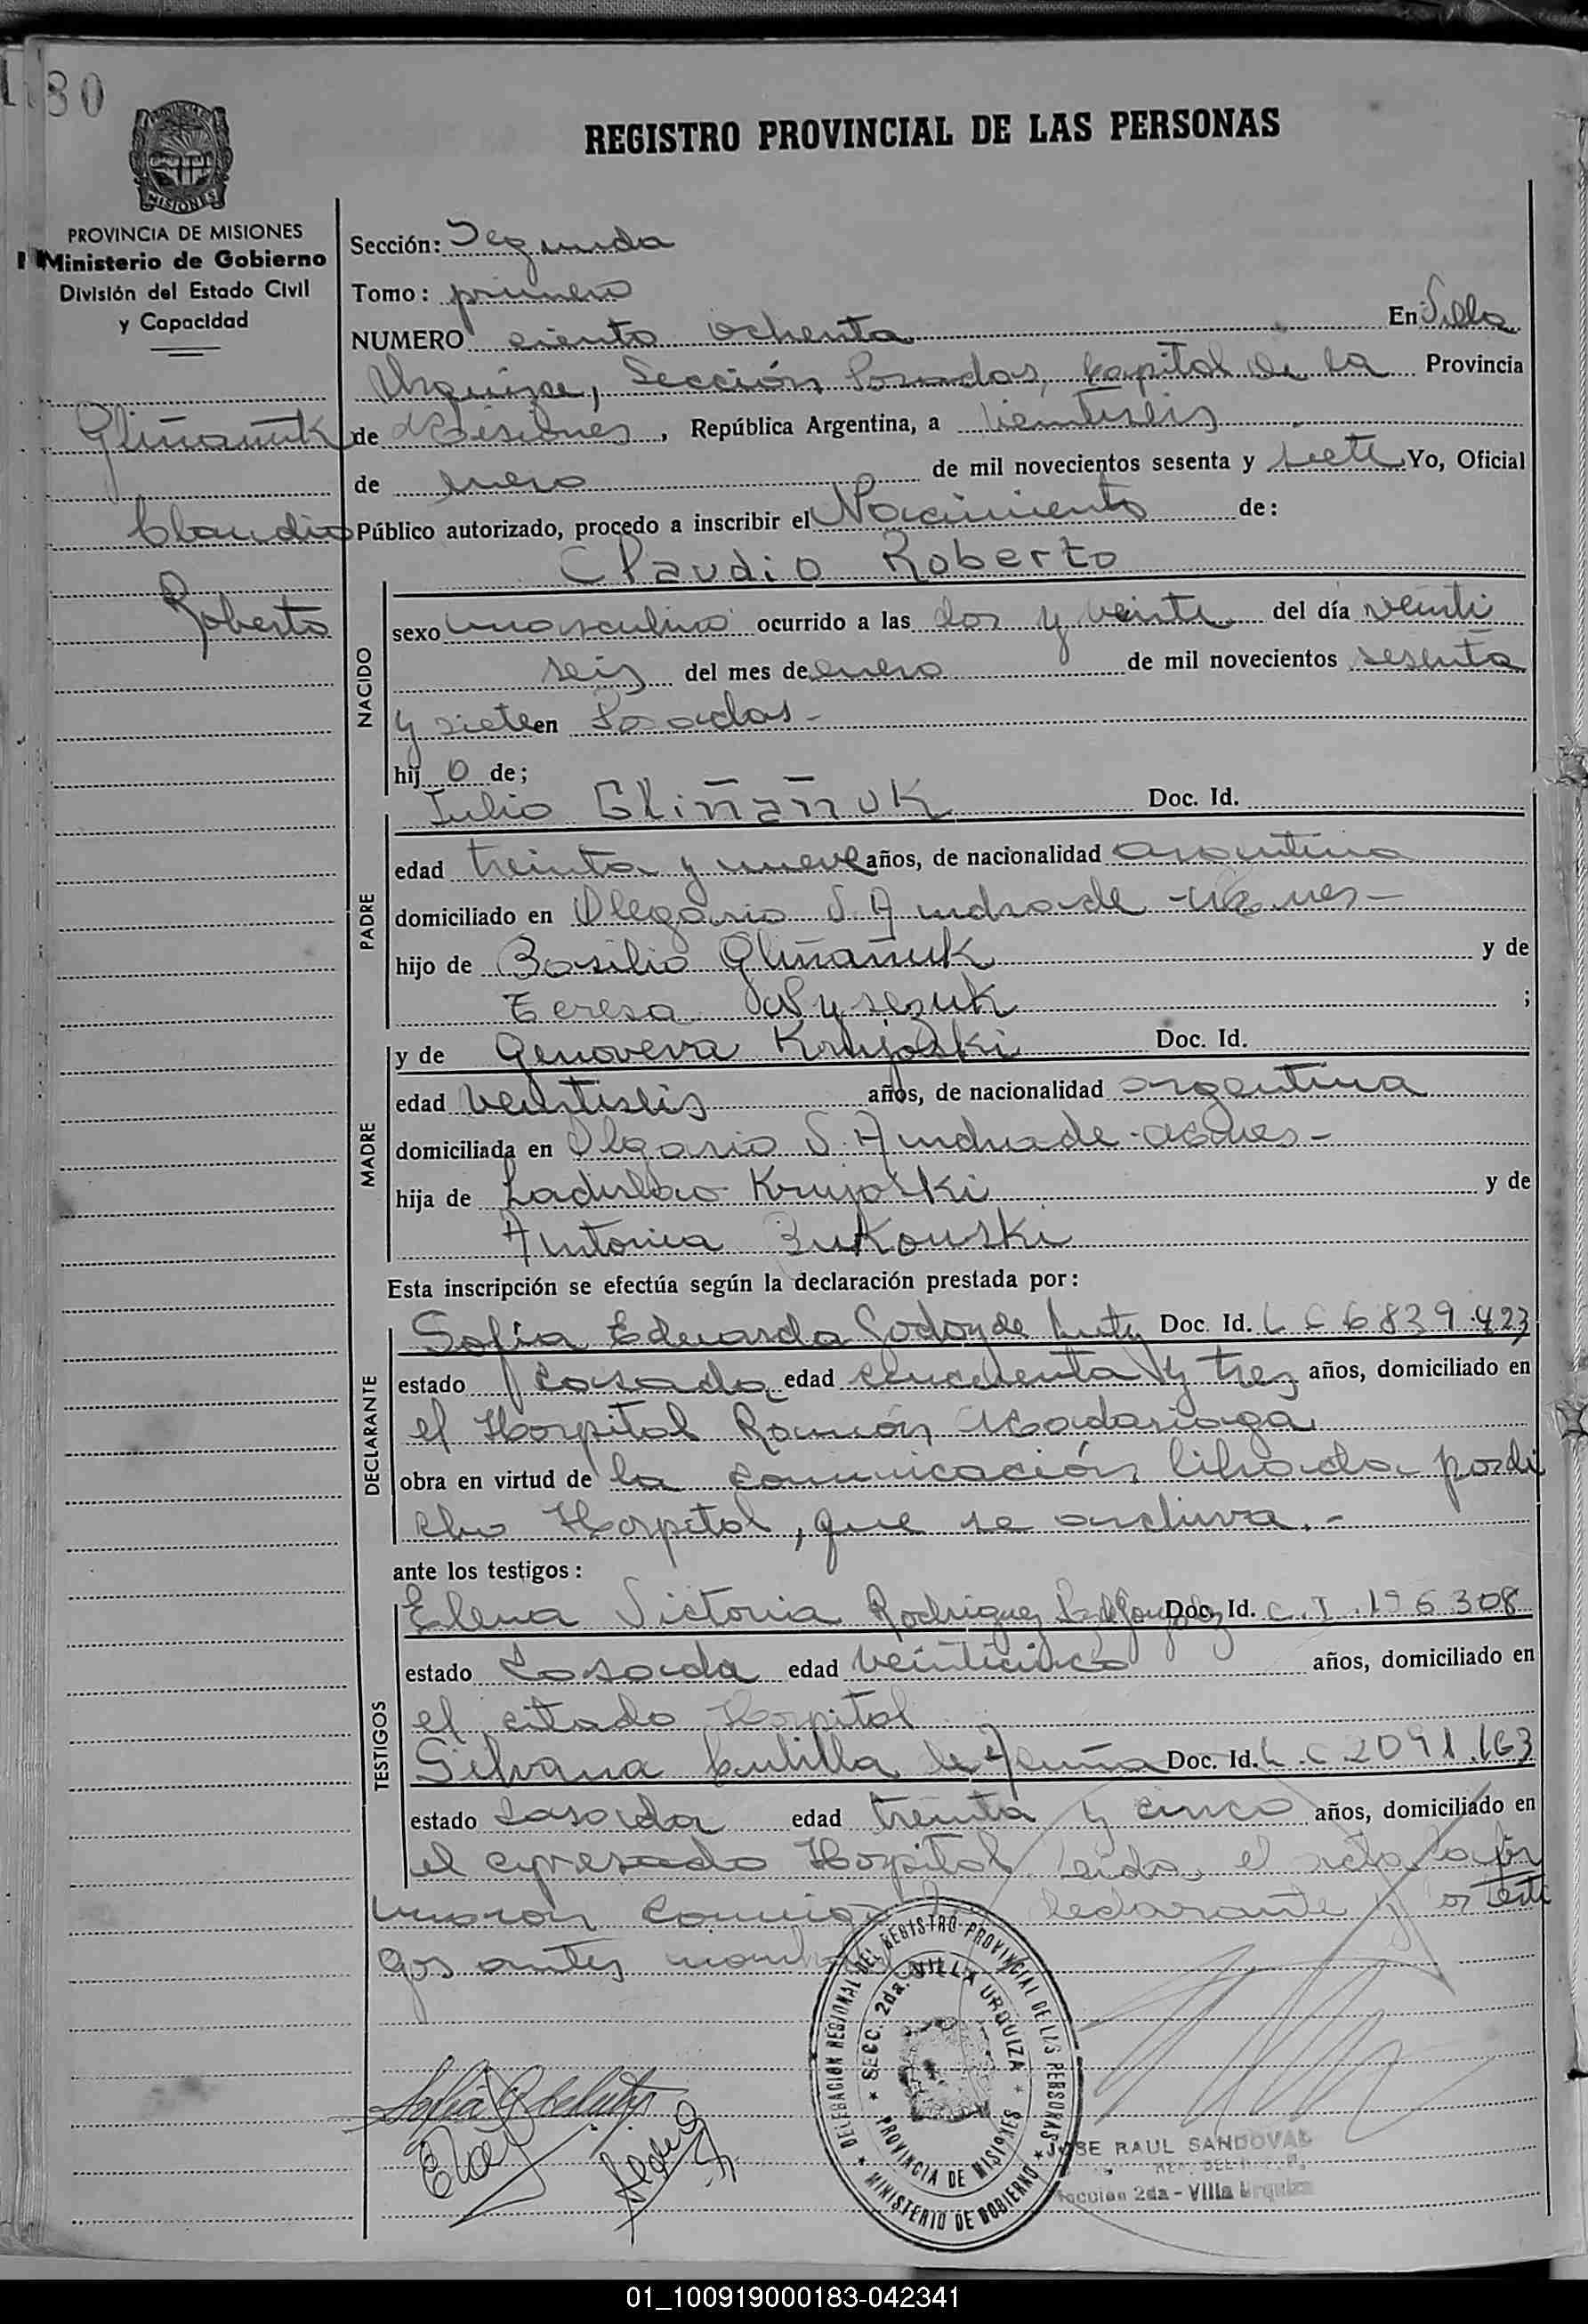 180
REGISTRO PROVINCIAL DE LAS PERSONAS
MISIONES
PROVINCIA DE MISIONES
Ministerio de Gobierno
División del Estado Civil
y Capacidad
Gliñañuk
Claudio
Roberto
Sección: Segunda
Tomo: primero
NUMERO ciento ochenta En Villa
Urquiza, Sección Posadas, Capital de la Provincia
de Misiones, República Argentina, a veintiseis
de enero de mil novecientos sesenta y siete Yo, Oficial
Público autorizado, procedo a inscribir el Nacimiento de:
Claudio Roberto
NACIDO
sexo masculino ocurrido a las dos y veinte del día veinti
seis del mes de enero de mil novecientos sesenta
y siete en Posadas-
hijo de;
PADRE
Julio Gliñañuk Doc. Id.
edad treinta y nueve años, de nacionalidad argentina
domiciliado en Olegario V. Andrade -
hijo de Basilio Gliñañuk y de
Teresa ;
MADRE
y de Genoveva Doc. Id.
edad veintiseis años, de nacionalidad argentina
domiciliada en Olgario V. Andrade -
hija de Ladislao y de
Antonia Bukouski
Esta inscripción se efectúa según la declaración prestada por:
DECLARANTE
Sofía Eduarda Godoy de Doc. Id. L C 6839.423
estado casada edad cincuenta y tres años, domiciliado en
el Hospital Ramón Madariaga
obra en virtud de la comunicación librada por di
cho Hospital, que se archiva.-
ante los testigos:
TESTIGOS
Elena Victoria Rodriguez Doc. Id. C.I. 196308
estado casada edad veinticinco años, domiciliado en
el citado Hospital
Silvana de Acuña Doc. Id. L.C 2091.163
estado casada edad treinta y cinco años, domiciliado en
el expresado Hospital Leida el acta la fir
maron conmigo declarante y os testi
gos antes
DELEGACION REGIONAL DEL REGISTRO PROVINCIAL DE LAS PERSONAS
MINISTERIO DE GOBIERNO
SECC. 2da. VILLA URQUIZA
PROVINCIA DE MISIONES
JOSE RAUL SANDOVAL
Sección 2da - Villa Urquiza
01_100919000183-042341